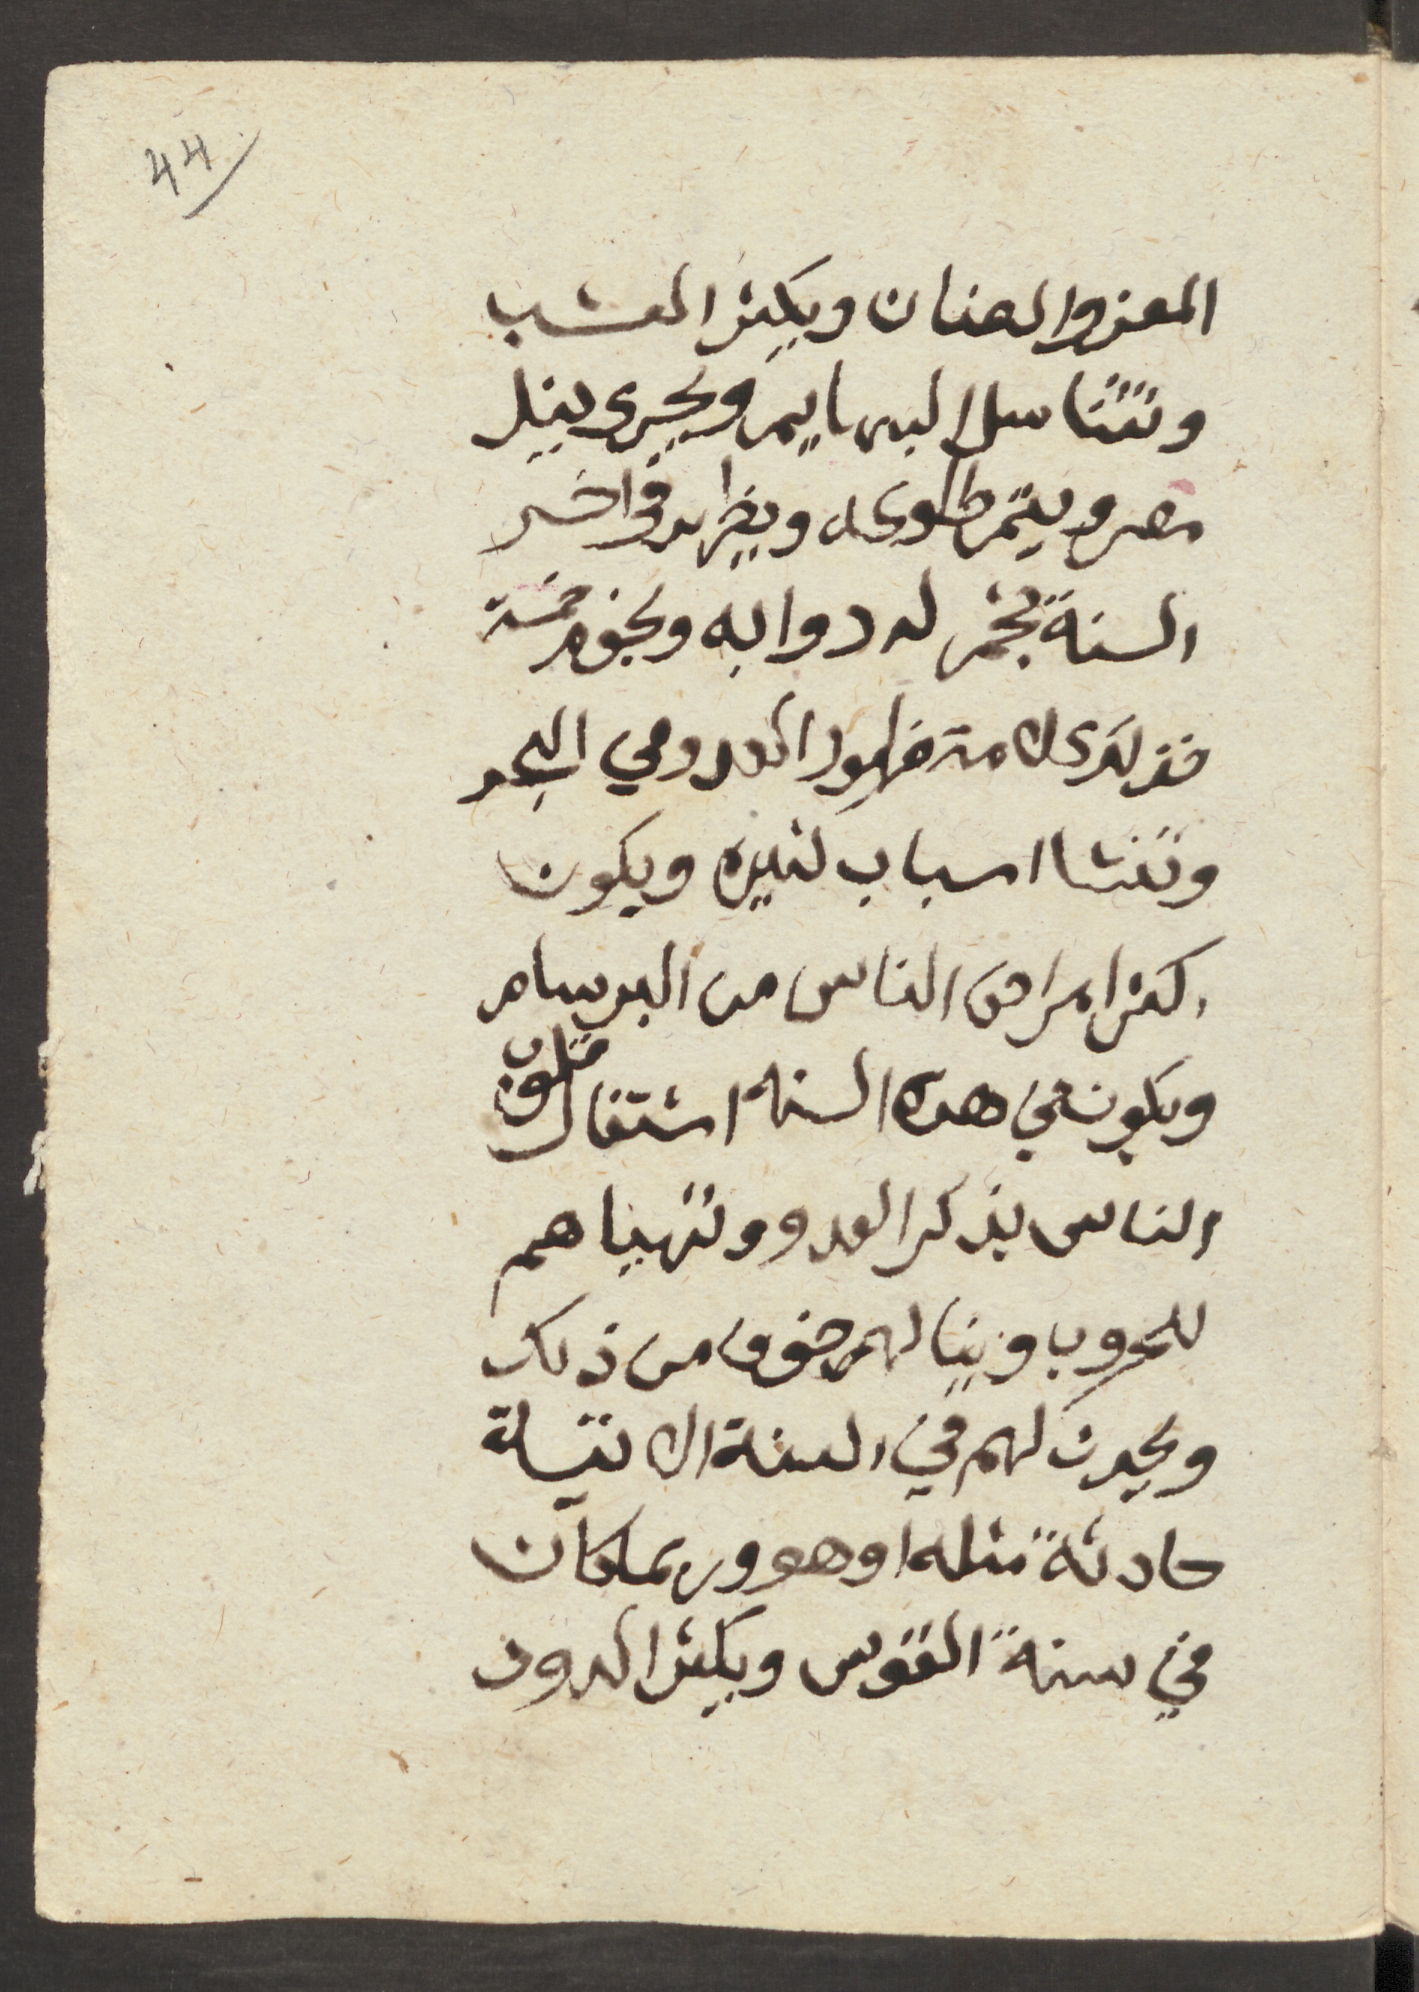 44
المعز والضان ويكثر العشب
وتتناسل البهايم ويجرى بنيل
مصر ويتم طلوعه ويظهر في اخر
السنة نجم له دوابه ونجوم خمسة
فذلك علامة ظهور العدو في البحر
وتنشا اسباب كثيره ويكون
اكثر امراض الناس من البرسام
ويكون في هذه السنه اشتغال قلوب
الناس بذكر العدو وتهياهم
للحروب وينالهم خوف من ذلك
ويحدث لهم في السنة الاتية
حادثة مثله او هو وربما كان
في سنة القوس ويكثر الدود